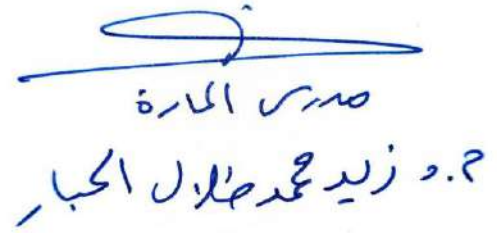 مدرس المادة
م.د زيد محمد طلال الحبار